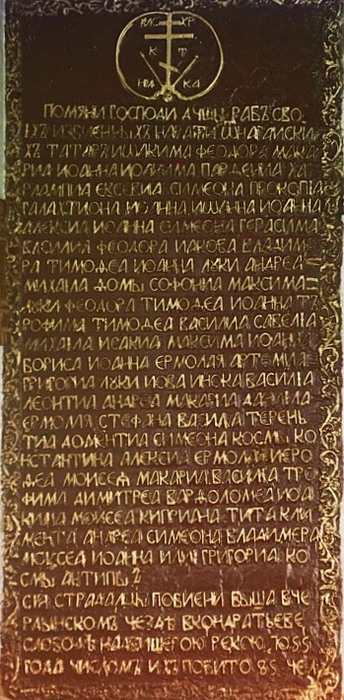 ІИС ХР
К Т
НИ КА
ПОМЯНИ ГОСПОДИ ДУШЫ РАБЪ СВО
ИХЪ ИЗБИЕННЫХЪ
ХЪ ТАТАРЪ ИОАКИМА ФЕОДОРА МАКА
РИА ИОАННА ИОАКИМА ПАРѲЕНИА ХА
РЛАМПИА ЕѴСЕВИА СИМЕОНА ПРОКОПІА
ГАЛАКТИОНА ИОАННА ИѠАННА ИОАННА
АЛЕКСІА ИОАННА СИМЕОНА ГЕРАСИМА
ВАСИЛИА ФЕОДОРА ИАКОВА ВЛАДИМЕ
РА ТИМОѲЕА ИОАННА ЛУКИ АНДРЕА
МИХАИЛА ДОМЫ СОФОНИА МАКСИМА
ЛУКИ ФЕОДОРА ТИМОѲЕА ИОАННА ТР
РОФИМА ТИМОѲЕА ВАСИЛИА САВЕЛІА
МИХАИЛА ИСАКИА МАКСИМА ИОАННА
БОРИСА ИОАННА ЕРМОЛАЯ АРТЕМИА
ГРИГОРИА ЛУКИ ИОВА ВАСИЛІА
ЛЕОНТИА АНДРЕА МАКАРИА ДАНИИЛА
ЕРМОЛАЯ СТЕФАНА ВАСИЛІА ТЕРЕНЬ
ТИА ДОМЕНТИА СИМЕОНА КОСМЫ КО
НСТАНТИНА АЛЕКСІА ЕРМОЛАЯ ИЕРО
ѲЕА МОИСЕЯ МАКАРИА ВАСИЛИА ТРО
ФИМА ДИМИТРЕА ВАРѲОЛОМЕА ИОА
КИМА МОИСЕА КИПРИАНА ТИТА КЛИ
МЕНТА АНДРЕА СИМЕОНА ВЛАДИМЕРА
МОИСЕА ИОАННА ИЛИИ ГРИГОРИА КО
СМЫ АНТИПЫ
СІИ СТРАДАЛЦЫ ПОБИЕНИ БЫША В ЧЕ
РДЫНСКОМЪ УЕЗДѢ В КОНДРАТЬЕВЕ
СЛОБОДѢ НАД ВИШЕРОЮ РЕКОЮ 7055
ГОДА ЧИСЛОМЪ ИХЪ ПОБИТО 85 ЧЕЛ